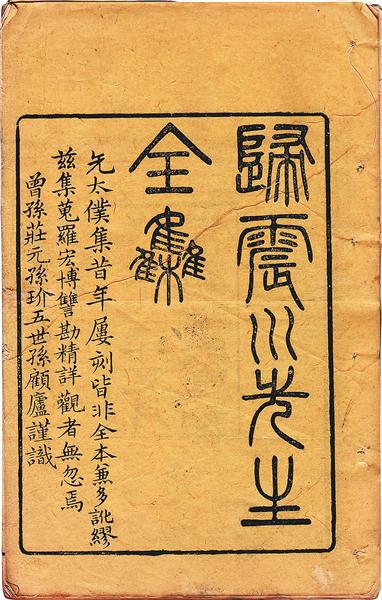 歸震川先生
全集
先太僕集昔年屢刻皆非全本兼多訛繆
茲集蒐羅宏博讐勘精詳觀者無忽焉
曾孫莊元孫玠五世孫顧廬謹識